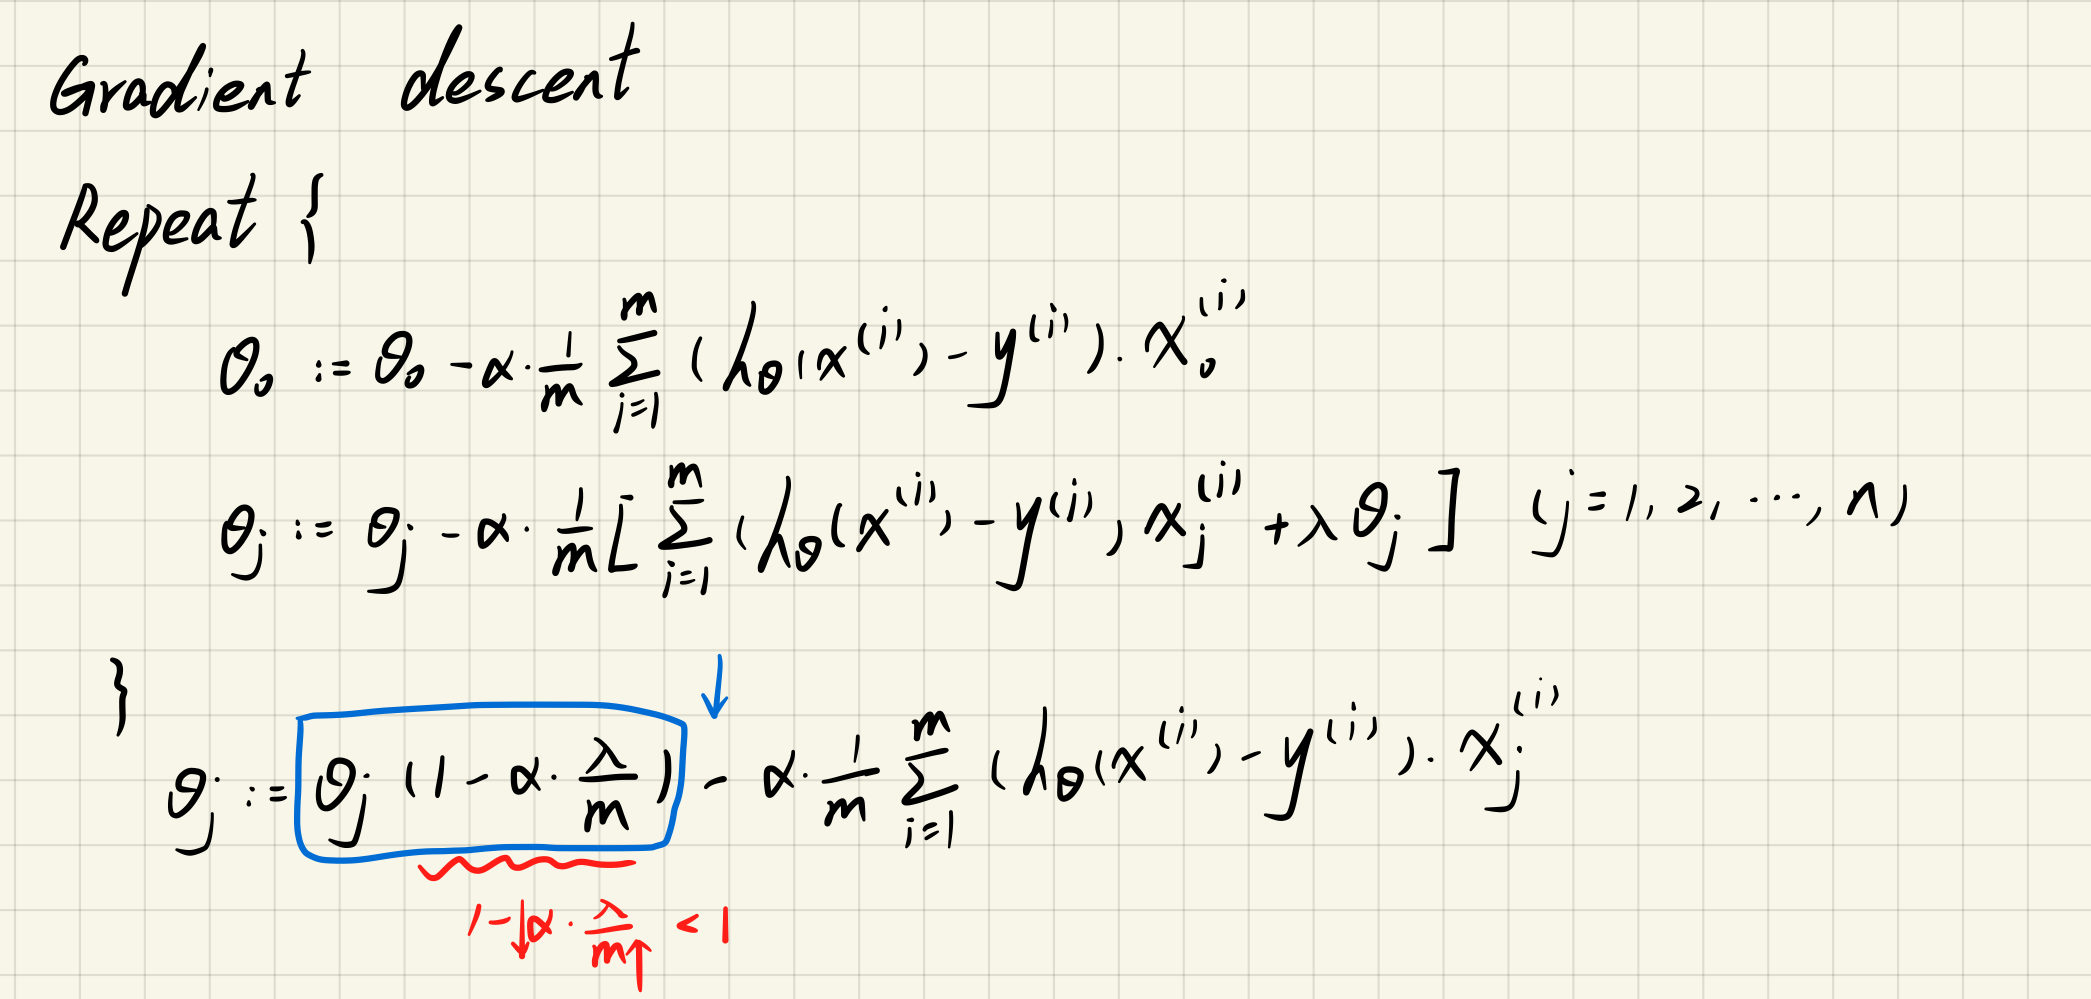 Gradient descent
Repeat {
θ₀ := θ₀ - α · 1/m ∑_{i=1}^{m} (h_θ(x^{(i)}) - y^{(i)}) · x₀^{(i)}
θ_j := θ_j - α · 1/m [ ∑_{i=1}^{m} (h_θ(x^{(i)}) - y^{(i)}) x_j^{(i)} + λθ_j ] (j = 1, 2, ⋯, n)
}
θ_j := θ_j (1 - α · λ/m) - α · 1/m ∑_{i=1}^{m} (h_θ(x^{(i)}) - y^{(i)}) · x_j^{(i)}
1 - ↓α · λ/m↑ < 1